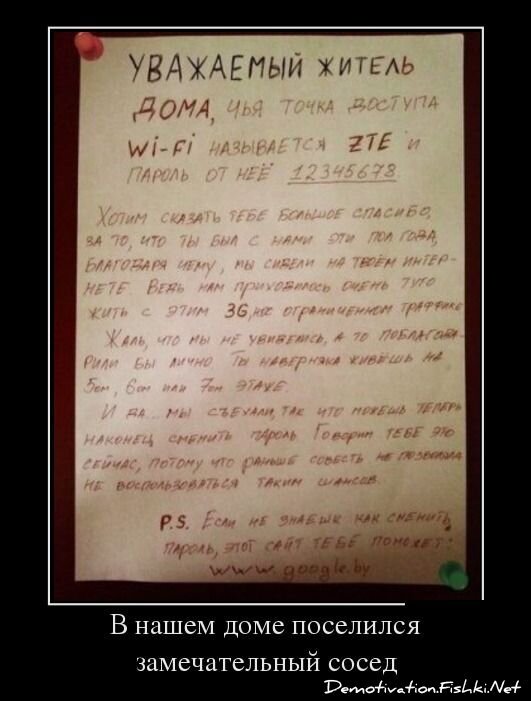 УВАЖАЕМЫЙ ЖИТЕЛЬ
ДОМА, ЧЬЯ ТОЧКА ДОСТУПА
Wi-Fi НАЗЫВАЕТСЯ ZTE И
ПАРОЛЬ ОТ НЕЁ 12345678
Хотим сказать тебе большое спасибо,
за то, что ты был с нами эти пол года,
благодаря чему, мы сидели на твоём интер-
нете. Ведь нам приходилось очень туго
жить с этим 3G, ограниченном траффике
Жаль, что мы не увиделись, а то поблагода-
рили бы лично. Ты наверняка живёшь на
5ом, 6ом или 7ом этаже.
И да... мы съехали, так что можешь теперь
наконец сменить пароль. Говорим тебе это
сейчас, потому что раньше совесть не позволяла
не воспользоваться таким шансом.
P.S. Если не знаешь как сменить
пароль, этот сайт тебе поможет:
www.google.by
В нашем доме поселился
замечательный сосед
Demotivation.Fishki.Net